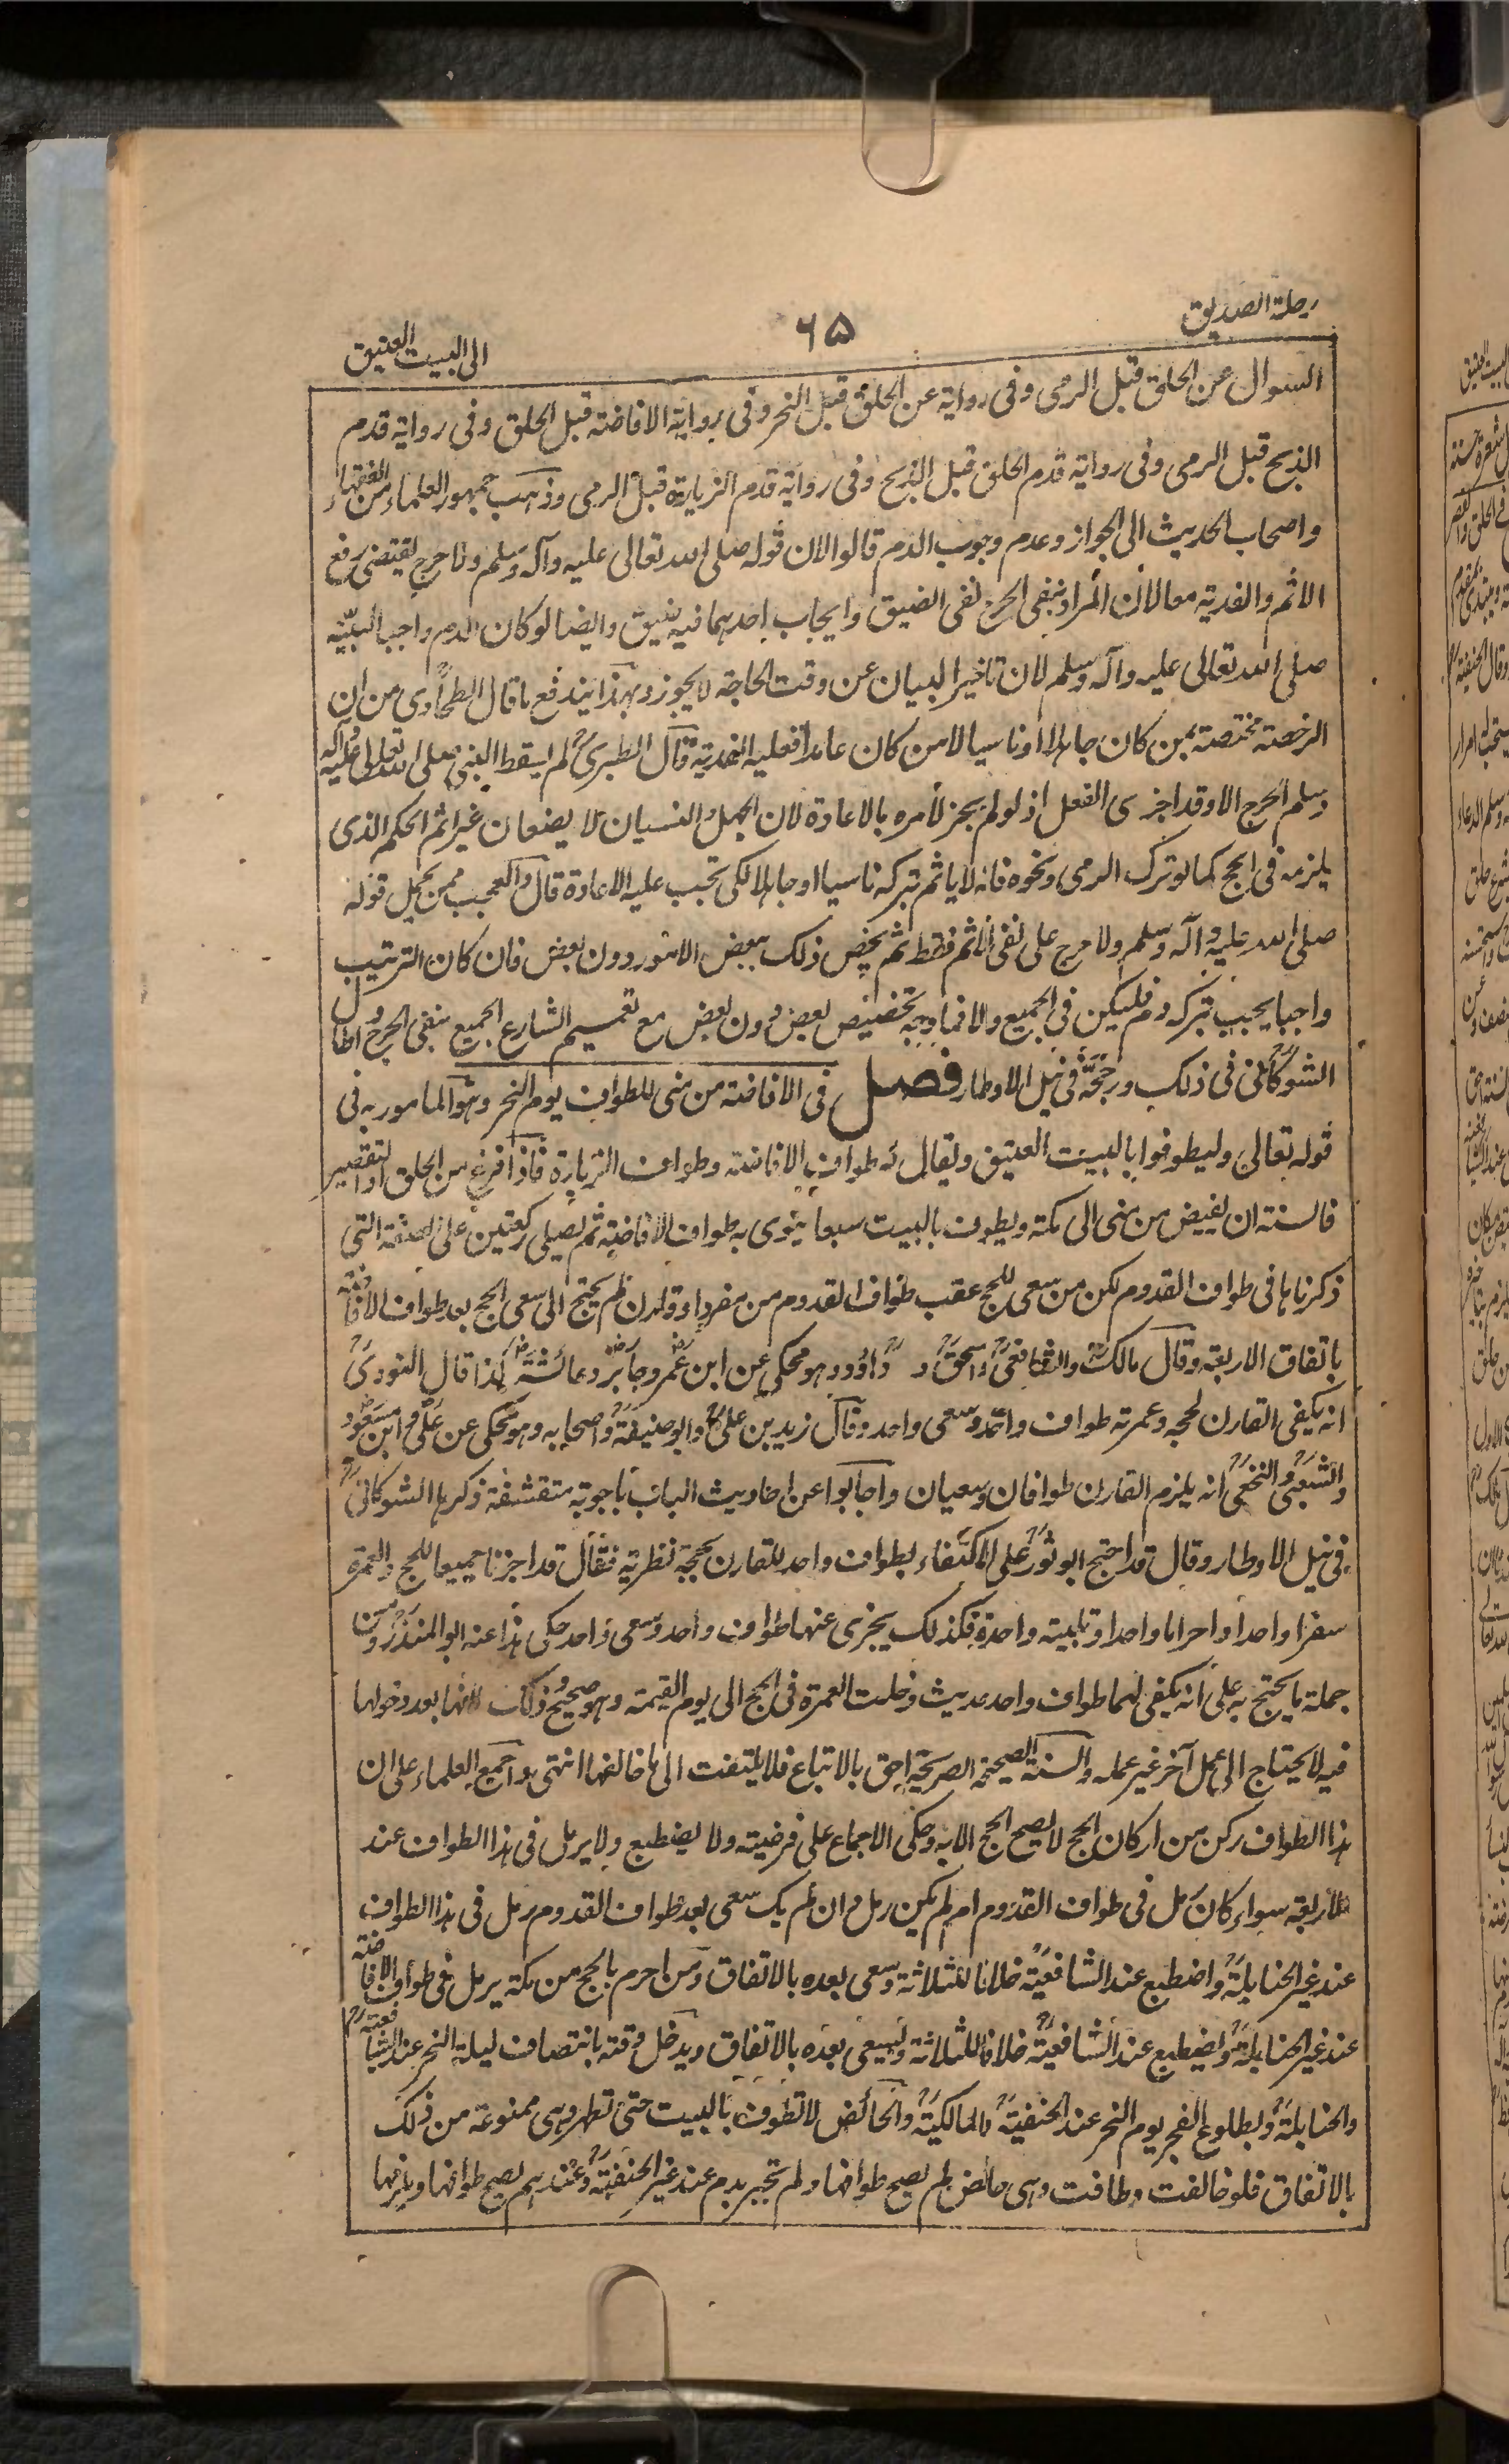 رحلة الصديق
٦٥
الى البيت العتيق
السوال عن الحلق قبل الرمى وفى رواية عن الحلق قبل النحر وفى رواية الافاضة قبل الحلق وفى رواية قدم
الذبح قبل الرمى وفى رواية قدم الحلق قبل الذبح وفى رواية قدم الزيارة قبل الرمى وذهب جمهور العلماء من الفقهاء
واصحاب الحديث الى الجواز وعدم وجوب الدم قالوا لان قوله صلى الله تعالى عليه وآله وسلم ولا حرج يقتضى رفع
الاثم والفدية معا لان المراد بنفى الحرج نفى الضيق وايجاب احدهما فيه ضيق وايضا لو كان الدم واجبا لبيّنه
صلى الله تعالى عليه وآله وسلم لان تاخير البيان عن وقت الحاجة لا يجوز وبهذا يندفع ما قال الطحاوى من ان
الرخصة مختصة بمن كان جاهلا او ناسيا لا من كان عامدا فعليه الفدية قال الطبرى لم يسقط النبى صلى الله تعالى عليه وآله
وسلم الحرج الا وقد اجزى الفعل اذ لو لم يجز لأمره بالاعادة لان الجهل والنسيان لا يضعان غير اثم الحكم الذى
يلزمه فى الحج كما لو ترك الرمى ونحوه فانه لا ياثم بتركه ناسيا او جاهلا لكن تجب عليه الاعادة قال والعجب ممن يحمل قوله
صلى الله عليه وآله وسلم ولا حرج على نفى الاثم فقط ثم يخص ذلك ببعض الامور دون بعض فان كان الترتيب
واجبا يجب بتركه دم فليكن فى الجميع والا فما وجه تخصيص بعض دون بعض مع تعميم الشارع الجميع بنفى الحرج واطال
الشوكانى فى ذلك ورجحه فى نيل الاوطار فصل فى الافاضة من منى للطواف يوم النحر وهو المامور به فى
قوله تعالى وليطوفوا بالبيت العتيق ويقال له طواف الافاضة وطواف الزيارة فاذا فرغ من الحلق او التقصير
فالسنة ان يفيض من منى الى مكة ويطوف بالبيت سبعا ينوى به طواف الافاضة ثم يصلى ركعتين على الصفة التى
ذكرناها فى طواف القدوم لكن من سعى للحج عقب طواف القدوم من مفرد او قارن لم يحتج الى سعى الحج بعد طواف الافاضة
باتفاق الاربعة وقال مالك والشافعى واسحق و داؤد وهو محكى عن ابن عمر وجابر وعائشة كذا قال النووى
انه يكفى القارن لحجه وعمرته طواف واحد وسعى واحد وقال زيد بن على وابو حنيفة واصحابه وهو محكى عن على وابن مسعود
والشعبى والنخعى انه يلزم القارن طوافان وسعيان واجابوا عن احاديث الباب باجوبة متقشفة ذكرها الشوكانى
فى نيل الاوطار وقال قد احتج ابو ثور على الاكتفاء بطواف واحد للقارن بحجة نظرية فقال قد اجزنا جميعا للحج والعمرة
سفرا واحدا واحراما واحدا وتلبية واحدة فكذلك يجزى عنهما طواف واحد وسعى واحد حكى هذا عنه ابو المنذر ومن
جملة ما يحتج به على انه يكفى لهما طواف واحد حديث دخلت العمرة فى الحج الى يوم القيمة وهو صحيح وذلك لانها بعد دخولها
فيه لا يحتاج الى عمل آخر غير عمله والسنة الصحيحة الصريحة احق بالاتباع فلا يلتفت الى ما خالفها انتهى واجمع العلماء على ان
هذا الطواف ركن من اركان الحج لا يصح الحج الا به وحكى الاجماع على فرضيته ولا يضطبع ولا يرمل فى هذا الطواف عند
الاربعة سواء كان رمل فى طواف القدوم ام لم يكن رمل وان لم يك سعى بعد طواف القدوم رمل فى هذا الطواف
عند غير الحنابلة واضطبع عند الشافعية خلافا للثلاثة وسعى بعده بالاتفاق ومن احرم بالحج من مكة يرمل فى طواف الافاضة
عند غير الحنابلة ويضطبع عند الشافعية خلافا للثلاثة ويسعى بعده بالاتفاق ويدخل وقته بانتصاف ليلة النحر عند الشافعية
والحنابلة وبطلوع الفجر يوم النحر عند الحنفية والمالكية والحائض لا تطوف بالبيت حتى تطهر وهى ممنوعة من ذلك
بالاتفاق فلو خالفت وطافت وهى حائض لم يصح طوافها ولم تجبر بدم عند غير الحنفية وعندهم يصح طوافها ويلزمها